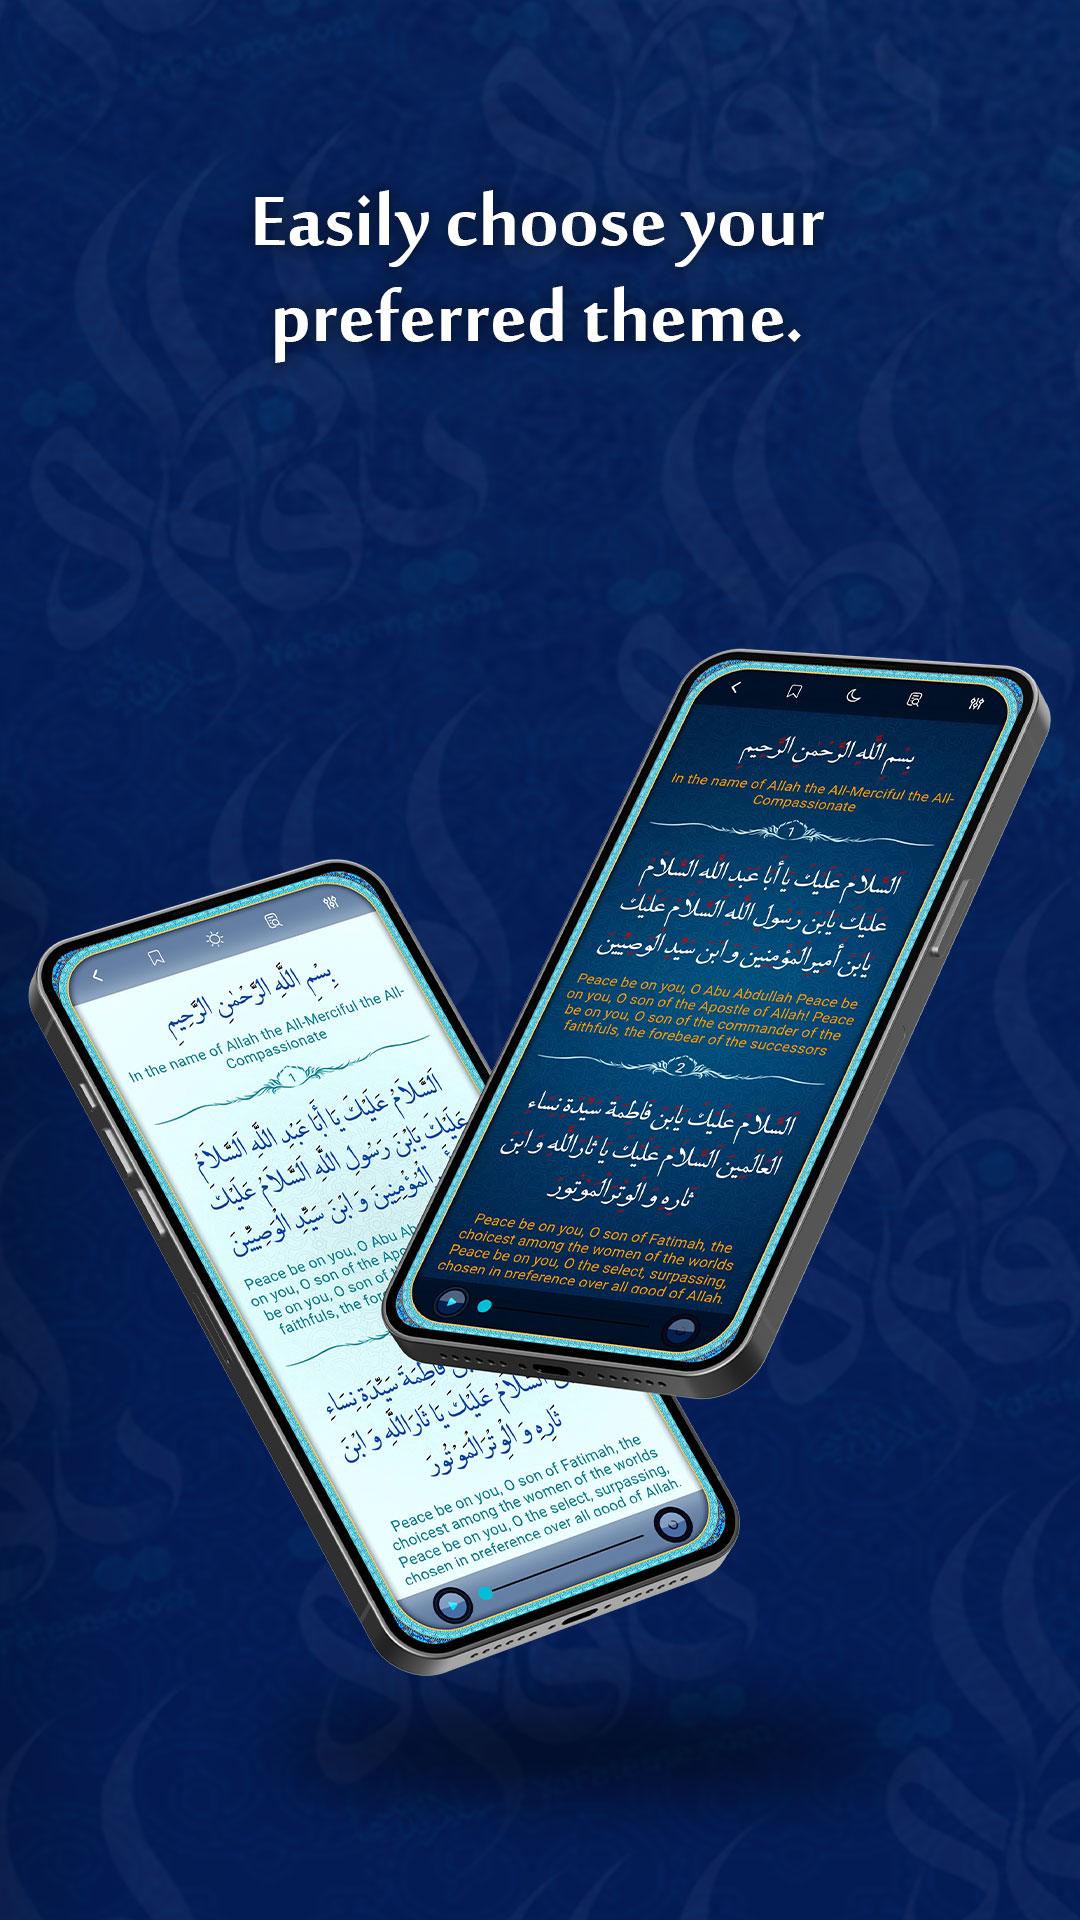 Easily choose your
preferred theme.
بِسْمِ اللَّهِ الرَّحْمٰنِ الرَّحِيمِ
In the name of Allah the All-Merciful the All-
Compassionate
1
اَلسَّلامُ عَلَيْكَ يَا أَبَا عَبْدِ اللَّهِ اَلسَّلامُ
عَلَيْكَ يَابْنَ رَسُولِ اللَّهِ اَلسَّلامُ عَلَيْكَ
يَابْنَ أَميرِالْمُؤْمِنينَ وَ ابْنَ سَيِّدِ الْوَصِيّينَ
Peace be on you, O Abu Abdullah Peace be
on you, O son of the Apostle of Allah! Peace
be on you, O son of the commander of the
faithfuls, the forebear of the successors
2
اَلسَّلامُ عَلَيْكَ يَابْنَ فَاطِمَةَ سَيِّدَةِ نِساءِ
الْعالَمينَ اَلسَّلامُ عَلَيْكَ يَا ثَارَاللَّهِ وَ ابْنَ
ثَارِهِ وَ الْوِتْرَالْمَوْتُورَ
Peace be on you, O son of Fatimah, the
choicest among the women of the worlds
Peace be on you, O the select, surpassing,
chosen in preference over all good of Allah.
بِسْمِ اللَّهِ الرَّحْمٰنِ الرَّحِيمِ
In the name of Allah the All-Merciful the All-
Compassionate
1
اَلسَّلامُ عَلَيْكَ يَا أَبَا عَبْدِ اللَّهِ اَلسَّلامُ
عَلَيْكَ يَابْنَ رَسُولِ اللَّهِ اَلسَّلامُ عَلَيْكَ
الْمُؤْمِنينَ وَ ابْنَ سَيِّدِ الْوَصِيّينَ
Peace be on you, O Abu
on you, O son of the
be on you, O son of
faithfuls, the
فَاطِمَةَ سَيِّدَةِ نِساءِ
اَلسَّلامُ عَلَيْكَ يَا ثَارَاللَّهِ وَ ابْنَ
ثَارِهِ وَ الْوِتْرَالْمَوْتُورَ
Peace be on you, O son of Fatimah, the
choicest among the women of the worlds
Peace be on you, O the select, surpassing,
chosen in preference over all good of Allah.